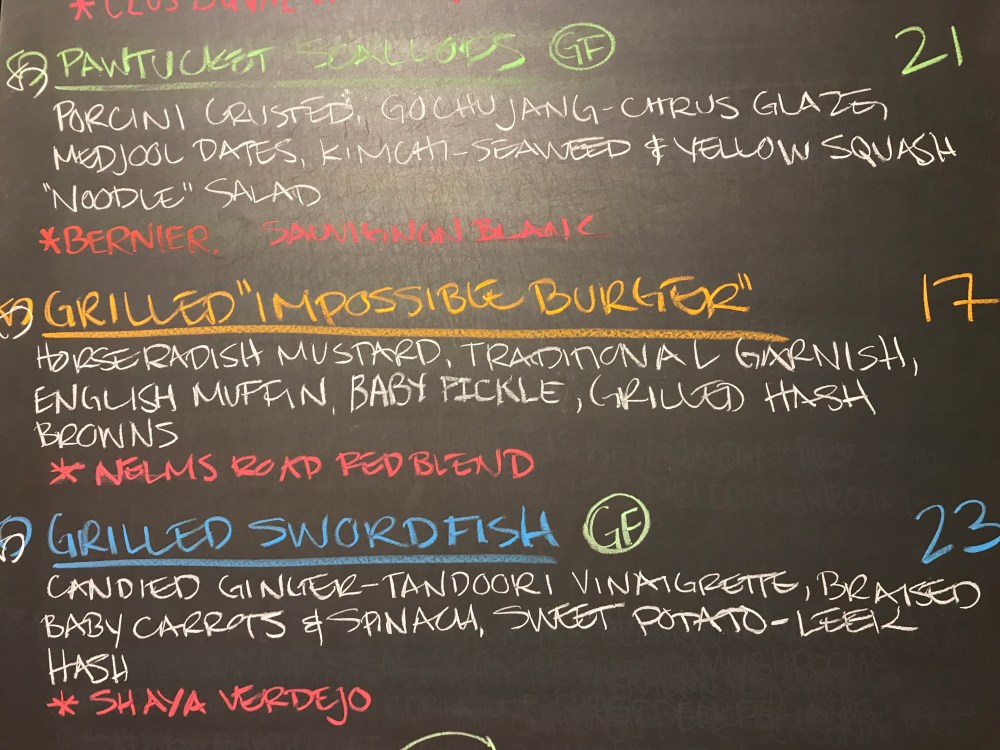 *CLOS
PAWTUCKET SCALLOPS GF 21
PORCINI CRUSTED, GOCHUJANG-CITRUS GLAZE,
MEDJOOL DATES, KIMCHI-SEAWEED & YELLOW SQUASH
"NOODLE" SALAD
*BERNIER. SAUVIGNON BLANC
GRILLED "IMPOSSIBLE BURGER" 17
HORSERADISH MUSTARD, TRADITIONAL GARNISH,
ENGLISH MUFFIN, BABY PICKLE, GRILLED HASH
BROWNS
* NELMS ROAD RED BLEND
GRILLED SWORDFISH GF 23
CANDIED GINGER-TANDOORI VINAIGRETTE, BRAISED
BABY CARROTS & SPINACH, SWEET POTATO-LEEK
HASH
* SHAYA VERDEJO